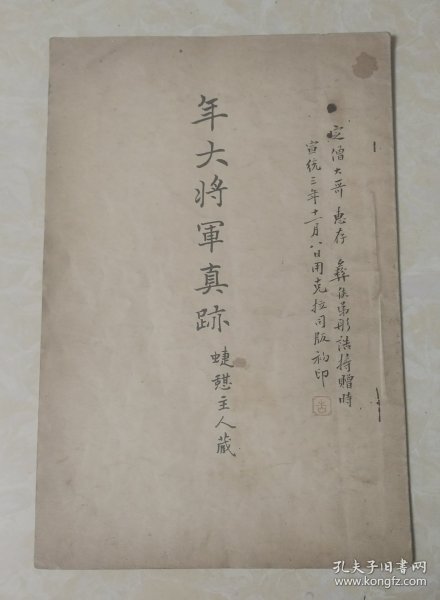 定僧大哥惠存 彝侯弟彤誥持贈時
宣統三年十一月八日用克拉同版初印
年大將軍真跡
蜨諶主人藏
孔夫子旧书网
www.kongfz.com